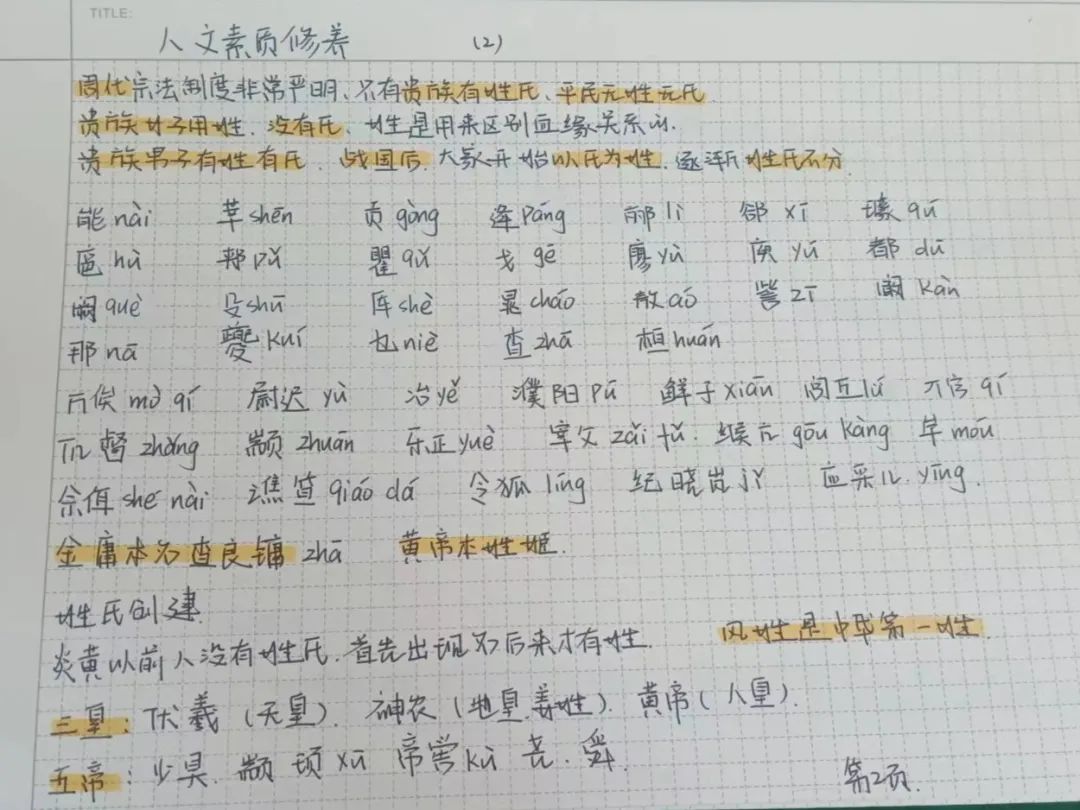 TITLE:
人文素质修养 (2)
周代宗法制度非常严明、只有贵族有姓氏、平民无姓无氏
贵族女子用姓、没有氏、姓是用来区别血缘关系的.
贵族男子有姓有氏. 战国后,大家开始以氏为姓、逐渐姓氏不分
能 nài 莘 shēn 贡 gòng 逄 páng 郦 lì 郤 xī 璩 qú
扈 hù 邦 pǔ 瞿 qú 戈 gē 廖 yù 庾 yú 都 dū
阙 què 殳 shū 厍 shè 晁 cháo 敖 aó 訾 zī 阚 kàn
那 nā 夔 kuí 乜 niè 查 zhā 桓 huán
万俟 mò qí 尉迟 yù 冶 yě 濮阳 pú 鲜于 xiān 闾丘 lú 亓官 qí
督 zhǎng 颛 zhuān 乐正 yuè 宰父 zǎi fǔ. 缑亢 gōu kàng 牟 móu
佘佴 shé nài 谯笪 qiáo dá 令狐 líng 纪晓岚 jǐ 应采儿 yīng.
金庸本名查良镛 zhā 黄帝本姓姬.
姓氏创建.
炎黄以前人没有姓氏.首先出现名后来才有姓. 风姓是中华第一姓.
三皇:伏羲(天皇). 神农(地皇.姜姓). 黄帝(人皇).
五帝:少昊. 颛顼 xū 帝喾 kù 尧.舜.
第2页.